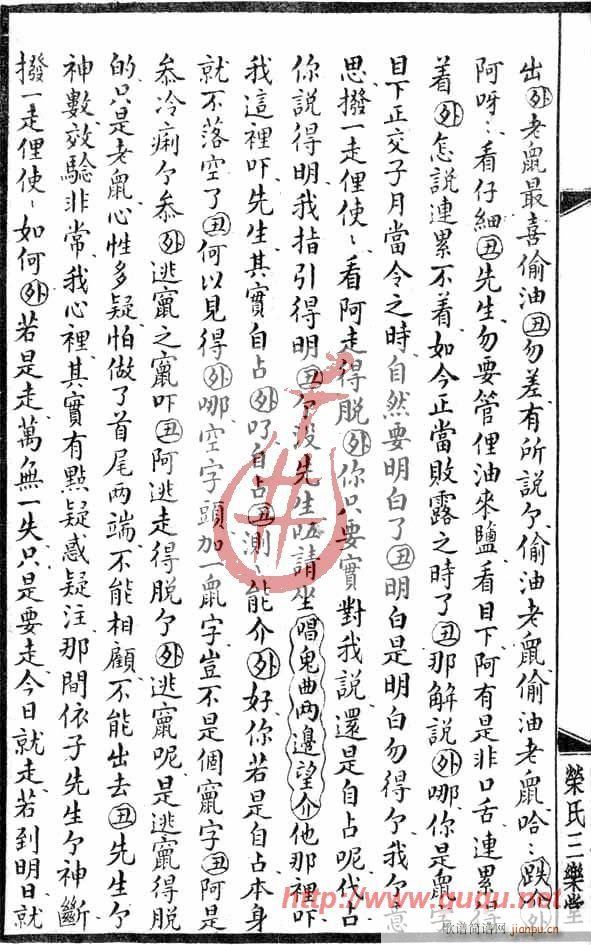 出外老鼠最喜偷油丑勿差有所說介偷油老鼠偷油老鼠哈〻跌介外
阿呀〻看仔細丑先生勿要管俚油來鹽看目下阿有是非口舌連累得
着外怎說連累不着如今正當敗露之時了丑那解說外哪你是鼠字
目下正交子月當令之時自然要明白了丑明白是明白勿得介我介意
思撥一走俚使〻看阿走得脫外你只要實對我說還是自占呢代占
你說得明我指引得明丑介沒先生請坐唱鬼曲兩邊望介他那裡吓
我這裡吓先生其實自占外吖自占丑測〻能介外好你若是自占本身
就不落空了丑何以見得外哪空字頭加一鼠字豈不是個竄字丑阿是
叅冷痢介叅外逃竄之竄吓丑阿逃走得脫介外逃竄呢是逃竄得脫
的只是老鼠心性多疑怕做了首尾兩端不能相顧不能出去丑先生介
神數效驗非常我心裡其實有點疑惑疑注那間依子先生介神斷
撥一走俚使〻如何外若是走萬無一失只是要走今日就走若到明日就
榮氏三樂堂
http://www.ququ.net
歌谱简谱网
jianpu.cn